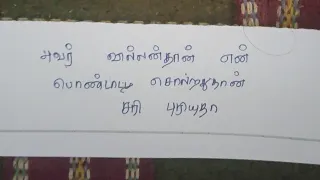 அவர் வில்லன்தான் என்
பொண்டாட்டி சொல்றதுதான்
சரி புரியுதா